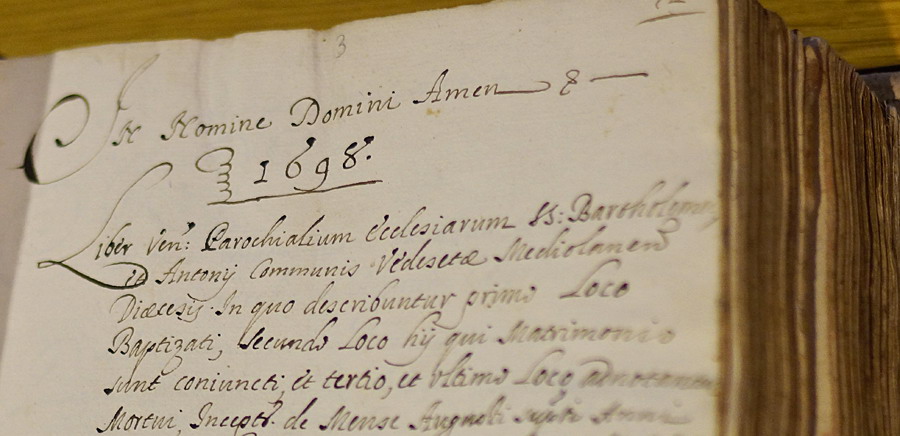 3
In Nomine Domini Amen
1698.
Liber Ven: Parochialium Ecclesiarum SS: Bartholom
et Antonij Communis Vedesetæ Mediolanen
Diæcesis. In quo describuntur primo Loco
Baptizati, Secundo Loco hij qui Matrimonio
sunt coniuncti, et tertio, et ultimo Loco adnotantur
Mortui, Incept. de Mense Augusti